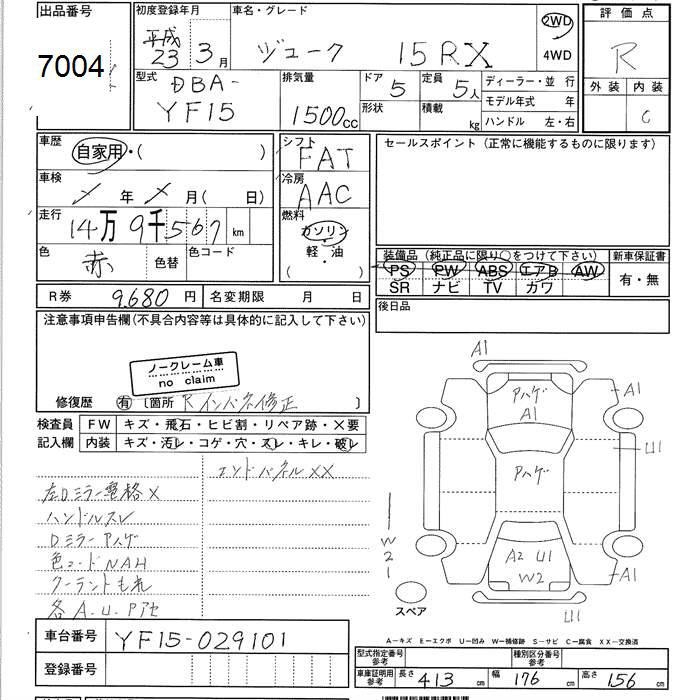 出品番号
7004
初度登録年月
平成
23 3月
車名・グレード
ジューク 15RX
2WD
4WD
評価点
R
外装 内装
C
型式
DBA-
YF15
排気量
1500cc
ドア 5
形状
定員 5人
積載 kg
ディーラー・並行
モデル年式 年
ハンドル 左・右
車歴
自家用・( )
シフト
FAT
セールスポイント (正常に機能するものに限ります)
車検 年 月( 日)
冷房
AAC
走行
14万9千567km
燃料
ガソリン
軽・油
( )
色
赤 色替
色コード
装備品 (純正品に限り○をつけて下さい)
PS PW ABS エアB AW
SR ナビ TV カワ
新車保証書
有・無
R券 9,680円
名変期限 月 日
後日品
注意事項申告欄(不具合内容等は具体的に記入して下さい)
ノークレーム車
no claim
修復歴 有 [箇所 Rインパネ修正
検査員
記入欄
FW キズ・飛石・ヒビ割・リペア跡・×要
内装 キズ・汚レ・コゲ・穴・スレ・キレ・破レ
エンドパネルXX
左Dミラー電格X
ハンドルスレ
Dミラーアハゲ
色コードNAH
クーラントもれ
各A.U.Pアセ
A1
アハゲ
A1
A1
U1
アハゲ
W
2
1
A2 U1
W2
A1
U1
スペア
A—キズ E—エクボ U—凹み W—補修跡 S—サビ C—腐食 XX—交換済
車台番号 YF15-029101
登録番号
型式指定番号
参考
種別区分番号
参考
車庫証明用
参考
長さ 413cm 幅 176cm 高さ 156cm